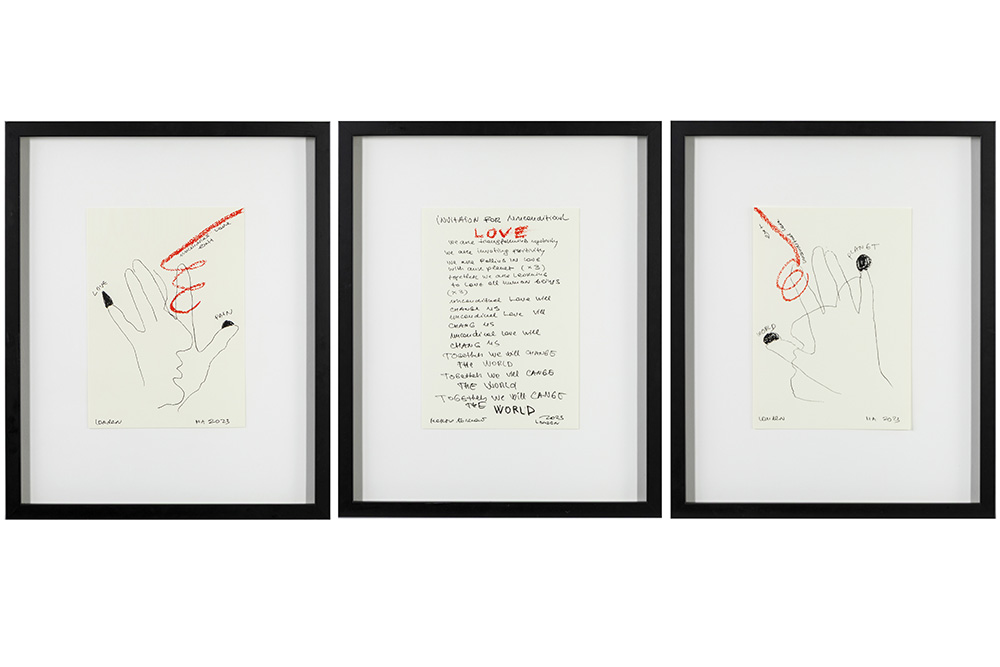 LOVE
UNCONDITIONAL LOVE
PAIN
LONDON
MA 2023
INVITAION FOR UNCONDITIONAL
LOVE
We are transforming
We are invoking
We are falling in love
with our planet (x3)
together we are learning
to love all human beings
(x3)
unconditional Love Will
CHANGE US
unconditional Love Will
CHANG US
unconditional love will
CHANG US
TOGETHER WE WILL CHANGE
THE WORLD
TOGETHER WE WILL CANGE
THE WORLD
TOGETHER WE WILL CANGE
THE WORLD
2023
LONDON
PLANET
WORLD
LONDON
MA 2023